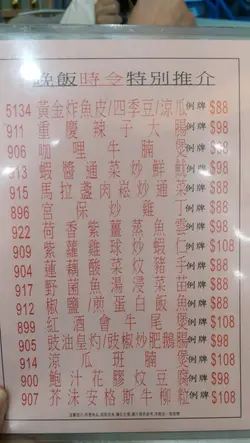 晚飯時令特別推介
5134 黃金炸魚皮/四季豆/涼瓜 例牌 $88
911 重慶辣子大腸 例牌 $98
906 咖哩牛腩煲 例牌 $98
913 蝦醬通菜炒鮮魷 例牌 $88
915 馬拉盞肉崧炒通菜 例牌 $88
896 宮保炒雞丁 例牌 $88
922 荷香紫薑蒸魚雲 例牌 $98
909 紫蘿雞球炒蝦仁 例牌 $108
904 蓮藕酸菜炆豬手 例牌 $98
917 野菌魚湯浸菜苗 例牌 $88
912 椒鹽/煎蛋白飯魚 例牌 $88
899 紅酒會牛尾煲 例牌 $108
905 豉油皇灼/豉椒炒肥鵝腸 例牌 $98
914 涼瓜斑腩煲 例牌 $108
900 鮑汁花膠炆豆腐 例牌 $98
907 芥沬安格斯牛柳粒 例牌 $108